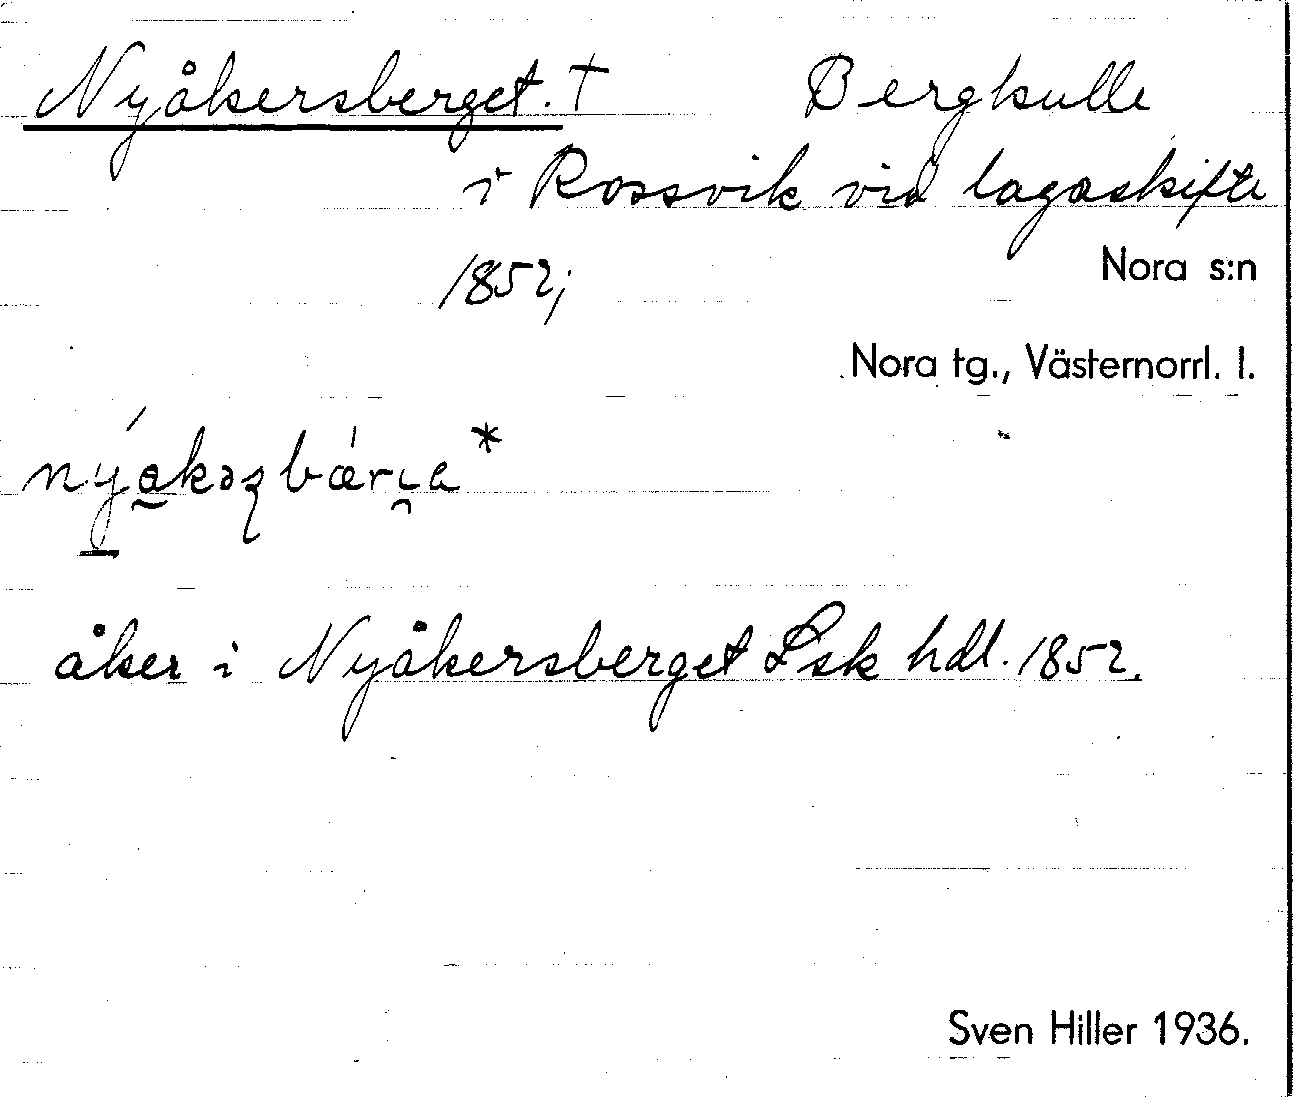 Nyåkersberget. † Bergkulle
i Rossvik vid lagaskifte
1852;
Nora s:n
Nora tg., Västernorrl. l.
åker i Nyåkersberget Lsk hdl. 1852.
Sven Hiller 1936.